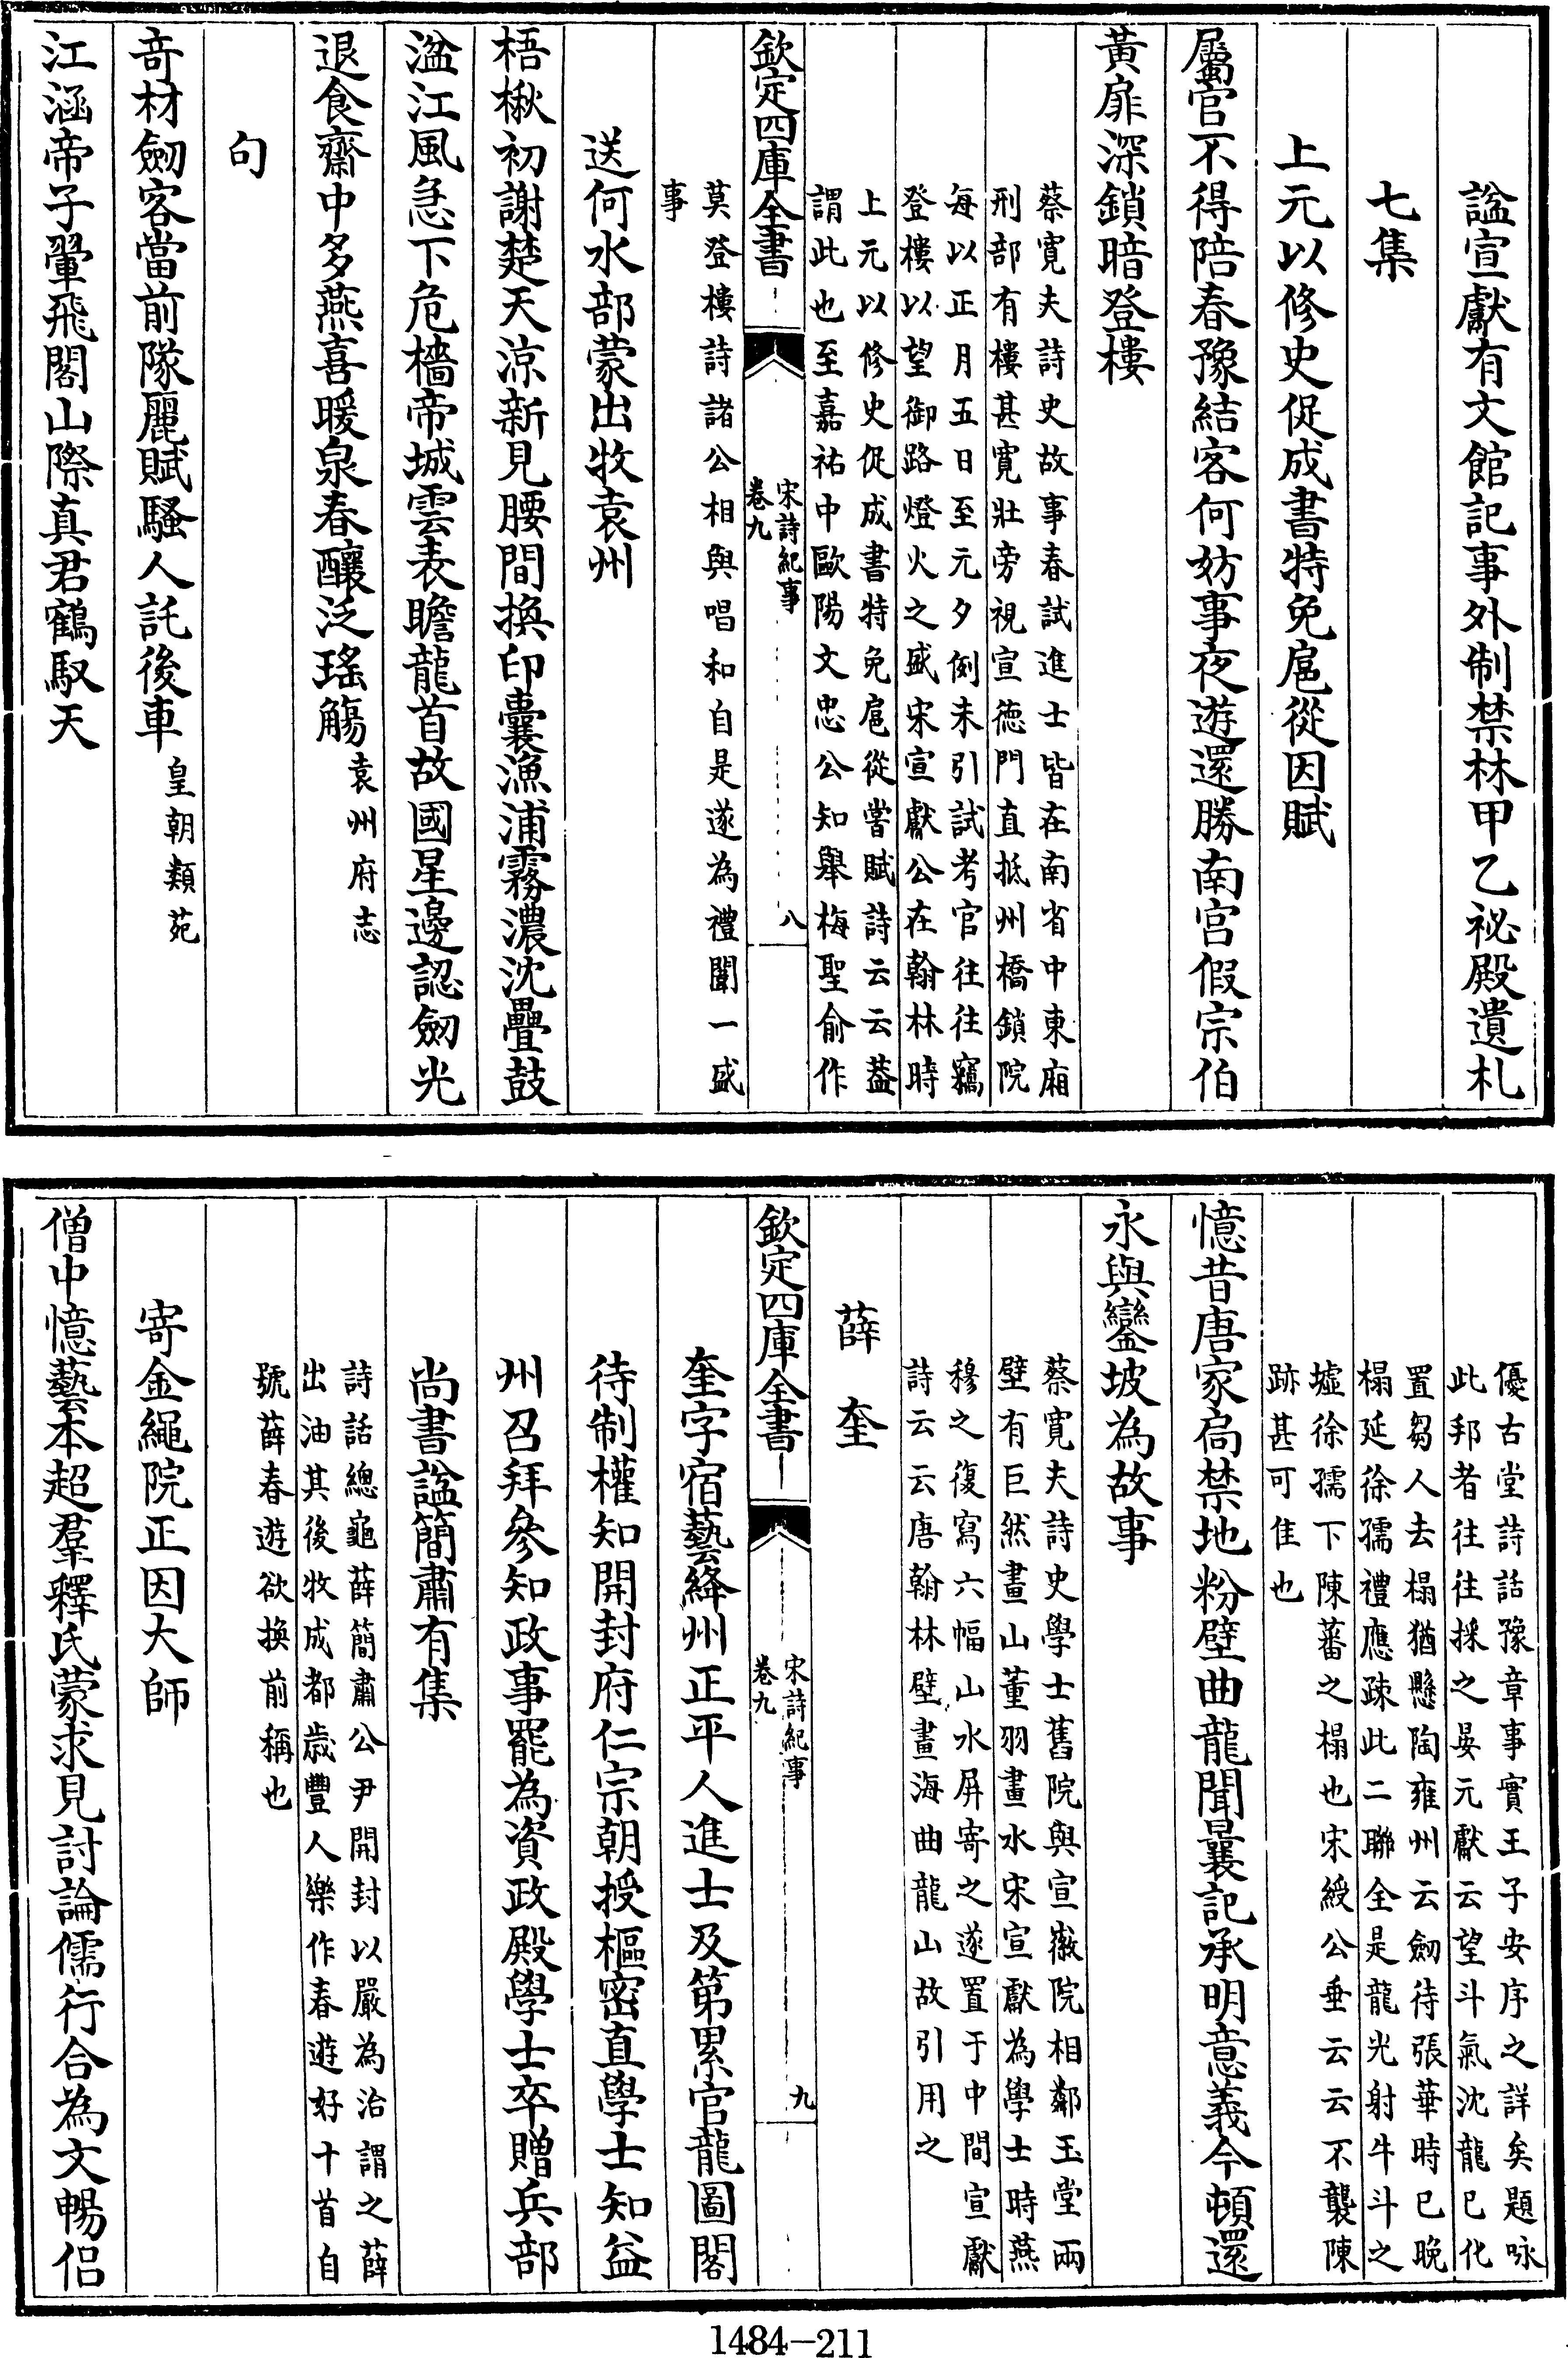 諡宣獻有文館記事外制禁林甲乙祕殿遺札
七集
上元以修史促成書特免扈從因賦
屬官不得陪春豫結客何妨事夜遊還勝南宮假宗伯
黃扉深鎖暗登樓
蔡寛夫詩史故事春試進士皆在南省中東廂
刑部有樓甚寛壯旁視宣德門直抵州橋鎖院
每以正月五日至元夕例未引試考官往往竊
登樓以望御路燈火之盛宋宣獻公在翰林時
上元以修史促成書特免扈從嘗賦詩云云葢
謂此也至嘉祐中歐陽文忠公知舉梅聖俞作
欽定四庫全書
宋詩紀事
卷九
八
莫登樓詩諸公相與唱和自是遂為禮闈一盛
事
送何水部蒙出牧袁州
梧楸初謝楚天涼新見腰間換印囊漁浦霧濃沈疊鼓
湓江風急下危檣帝城雲表瞻龍首故國星邊認劒光
退食齋中多燕喜暖泉春釀泛瑤觴袁州府志
句
竒材劒客當前隊麗賦騷人託後車皇朝類苑
江涵帝子翬飛閣山際真君鶴馭天
優古堂詩話豫章事實王子安序之詳矣題咏
此邦者往往採之晏元獻云望斗氣沈龍已化
置芻人去榻猶懸陶雍州云劒待張華時已晚
榻延徐孺禮應疎此二聯全是龍光射牛斗之
墟徐孺下陳蕃之榻也宋綬公垂云云不襲陳
跡甚可佳也
憶昔唐家扃禁地粉壁曲龍聞曩記承明意義今頓還
永與鑾坡為故事
蔡寛夫詩史學士舊院與宣徽院相鄰玉堂兩
壁有巨然畫山董羽畫水宋宣獻為學士時燕
穆之復寫六幅山水屏寄之遂置于中間宣獻
詩云云唐翰林壁畫海曲龍山故引用之
薛奎
欽定四庫全書
宋詩紀事
卷九
九
奎字宿藝絳州正平人進士及第累官龍圖閣
待制權知開封府仁宗朝授樞密直學士知益
州召拜參知政事罷為資政殿學士卒贈兵部
尚書諡簡肅有集
詩話總龜薛簡肅公尹開封以嚴為治謂之薛
出油其後牧成都歳豐人樂作春遊好十首自
號薛春遊欲換前稱也
寄金繩院正因大師
僧中憶藝本超羣釋氏蒙求見討論儒行合為文暢侶
1484—211